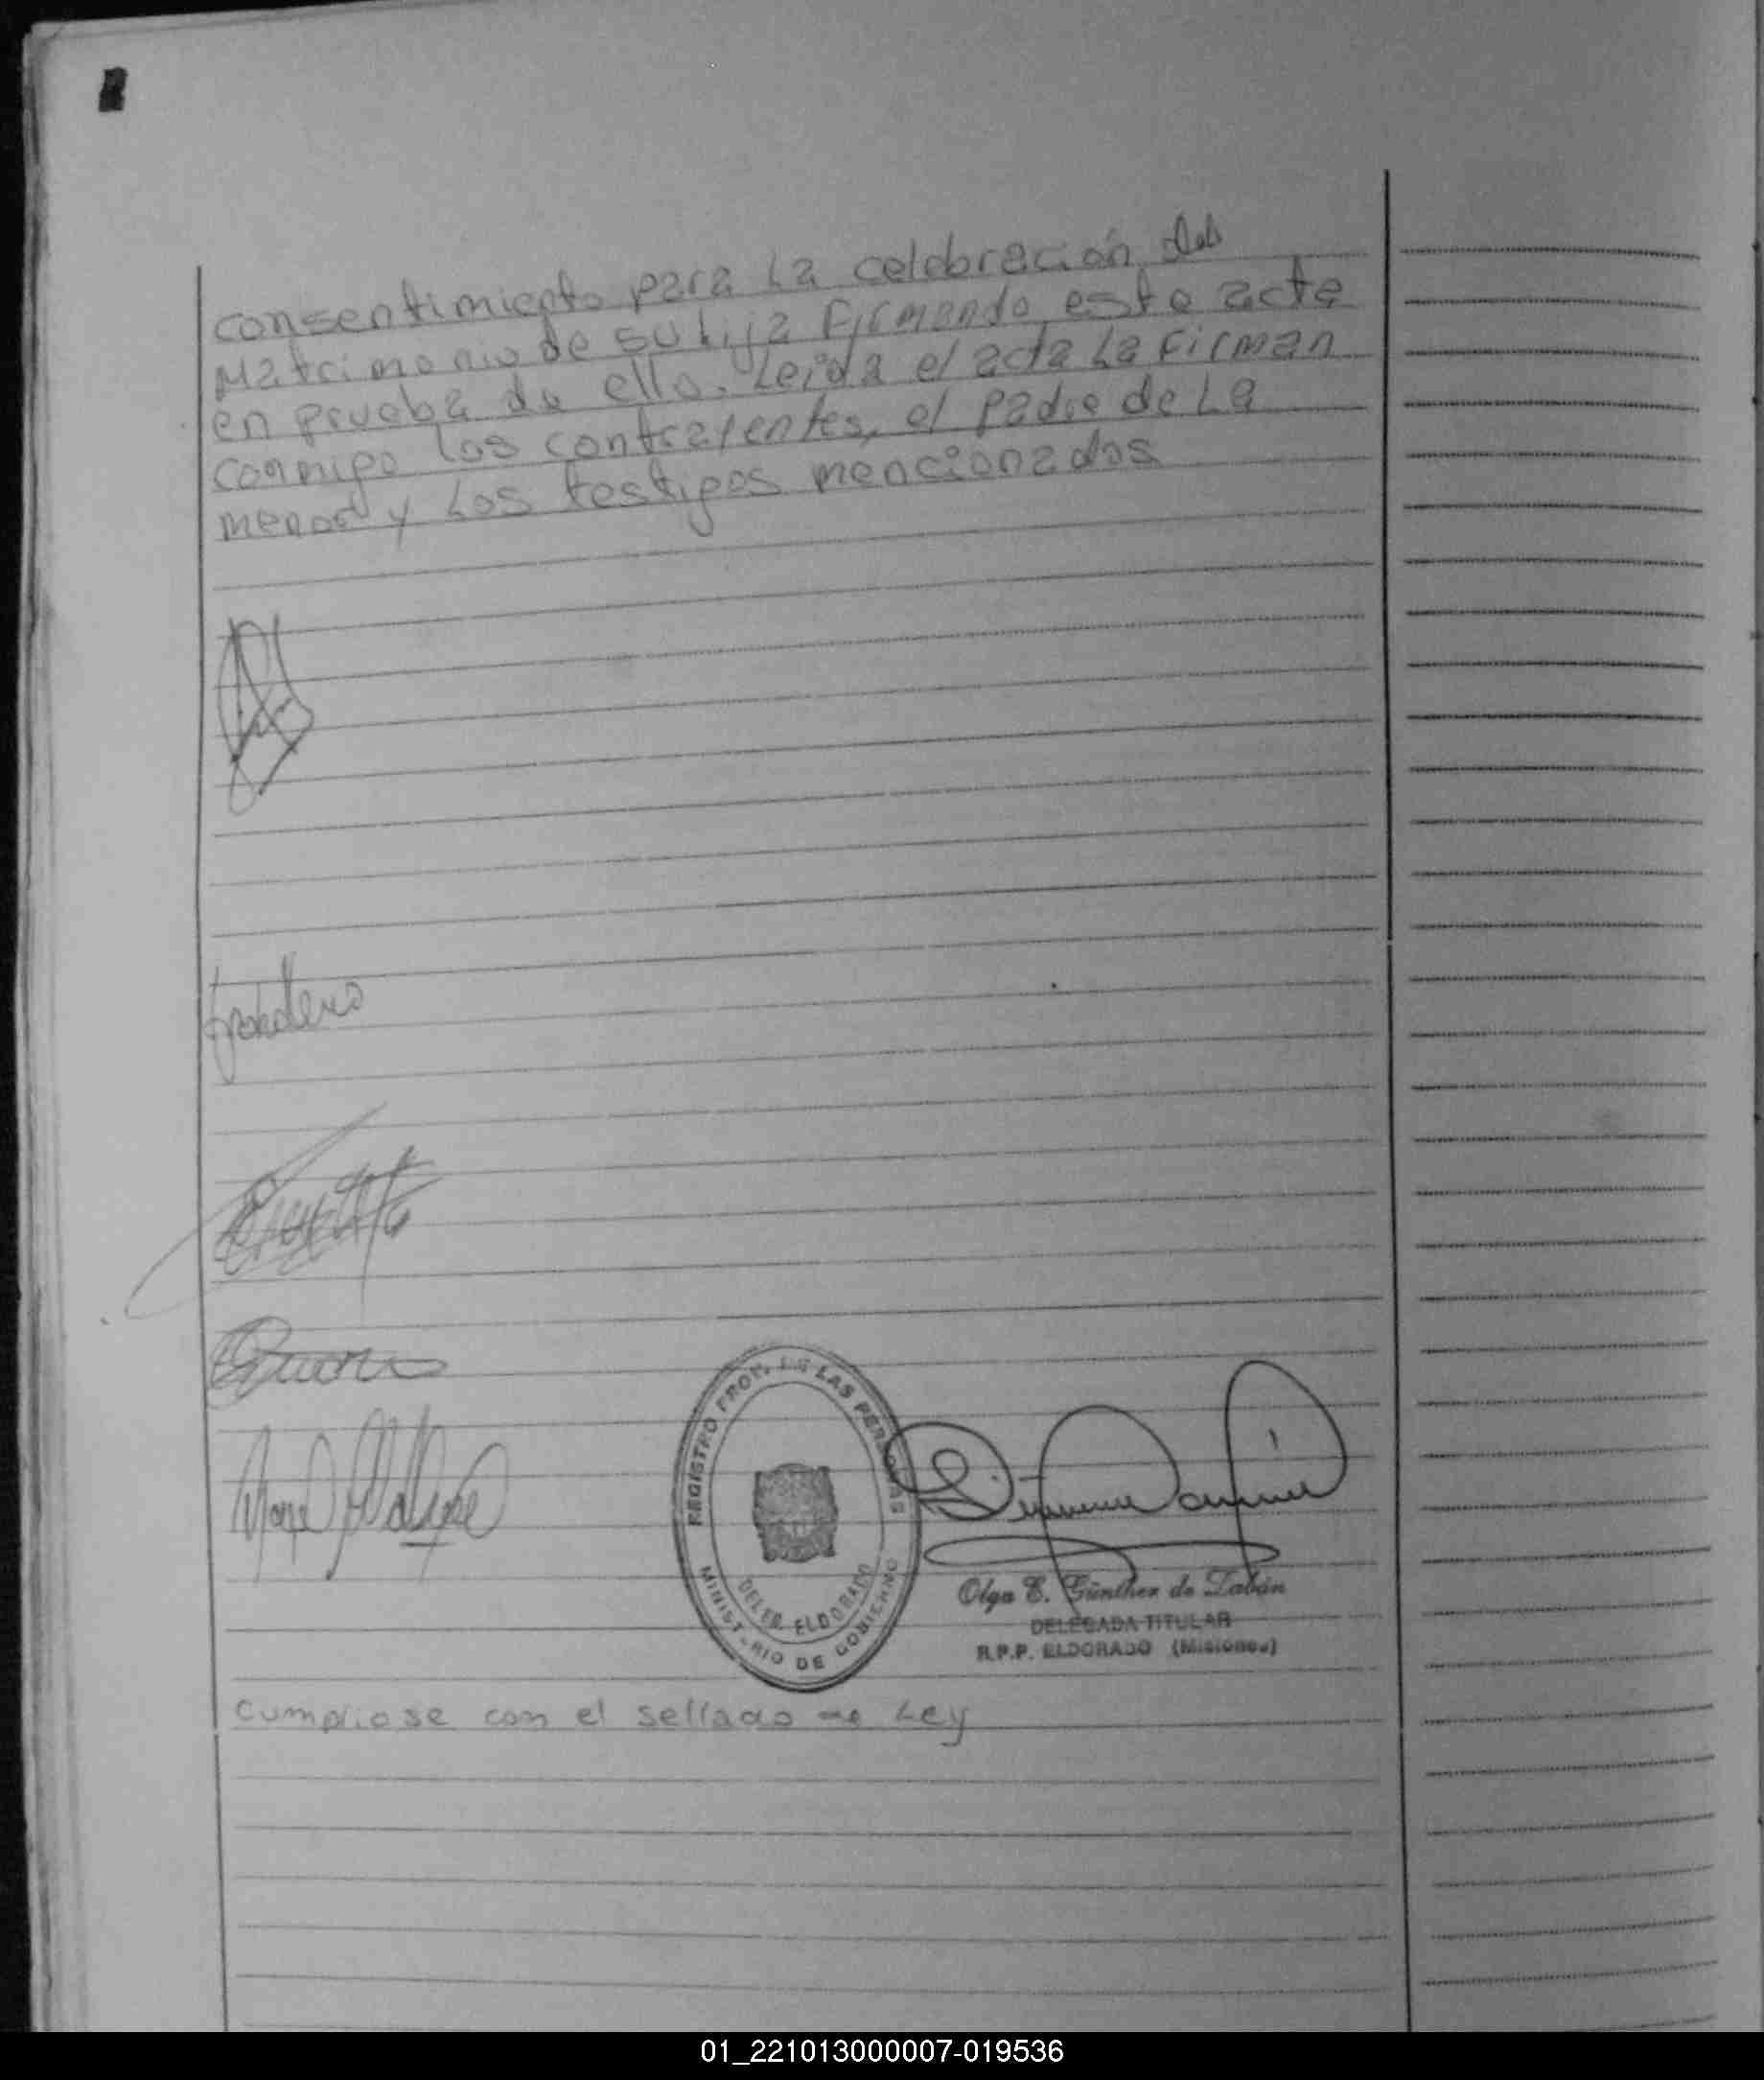 consentimiento para La celebración del
Matrimonio de su hija Firmando este acta
en prueba de ello. Leida el acta La Firman
conmigo los contrayentes, el padre de La
menor y Los testigos mencionados
REGISTRO PROV. DE LAS PERSONAS
MINISTERIO DE GOBIERNO
DELEG. ELDORADO
Olga E. Günther de Tabán
DELEGADA TITULAR
R.P.P. ELDORADO (Misiones)
Cumpliose con el sellado de Ley
01_221013000007-019536